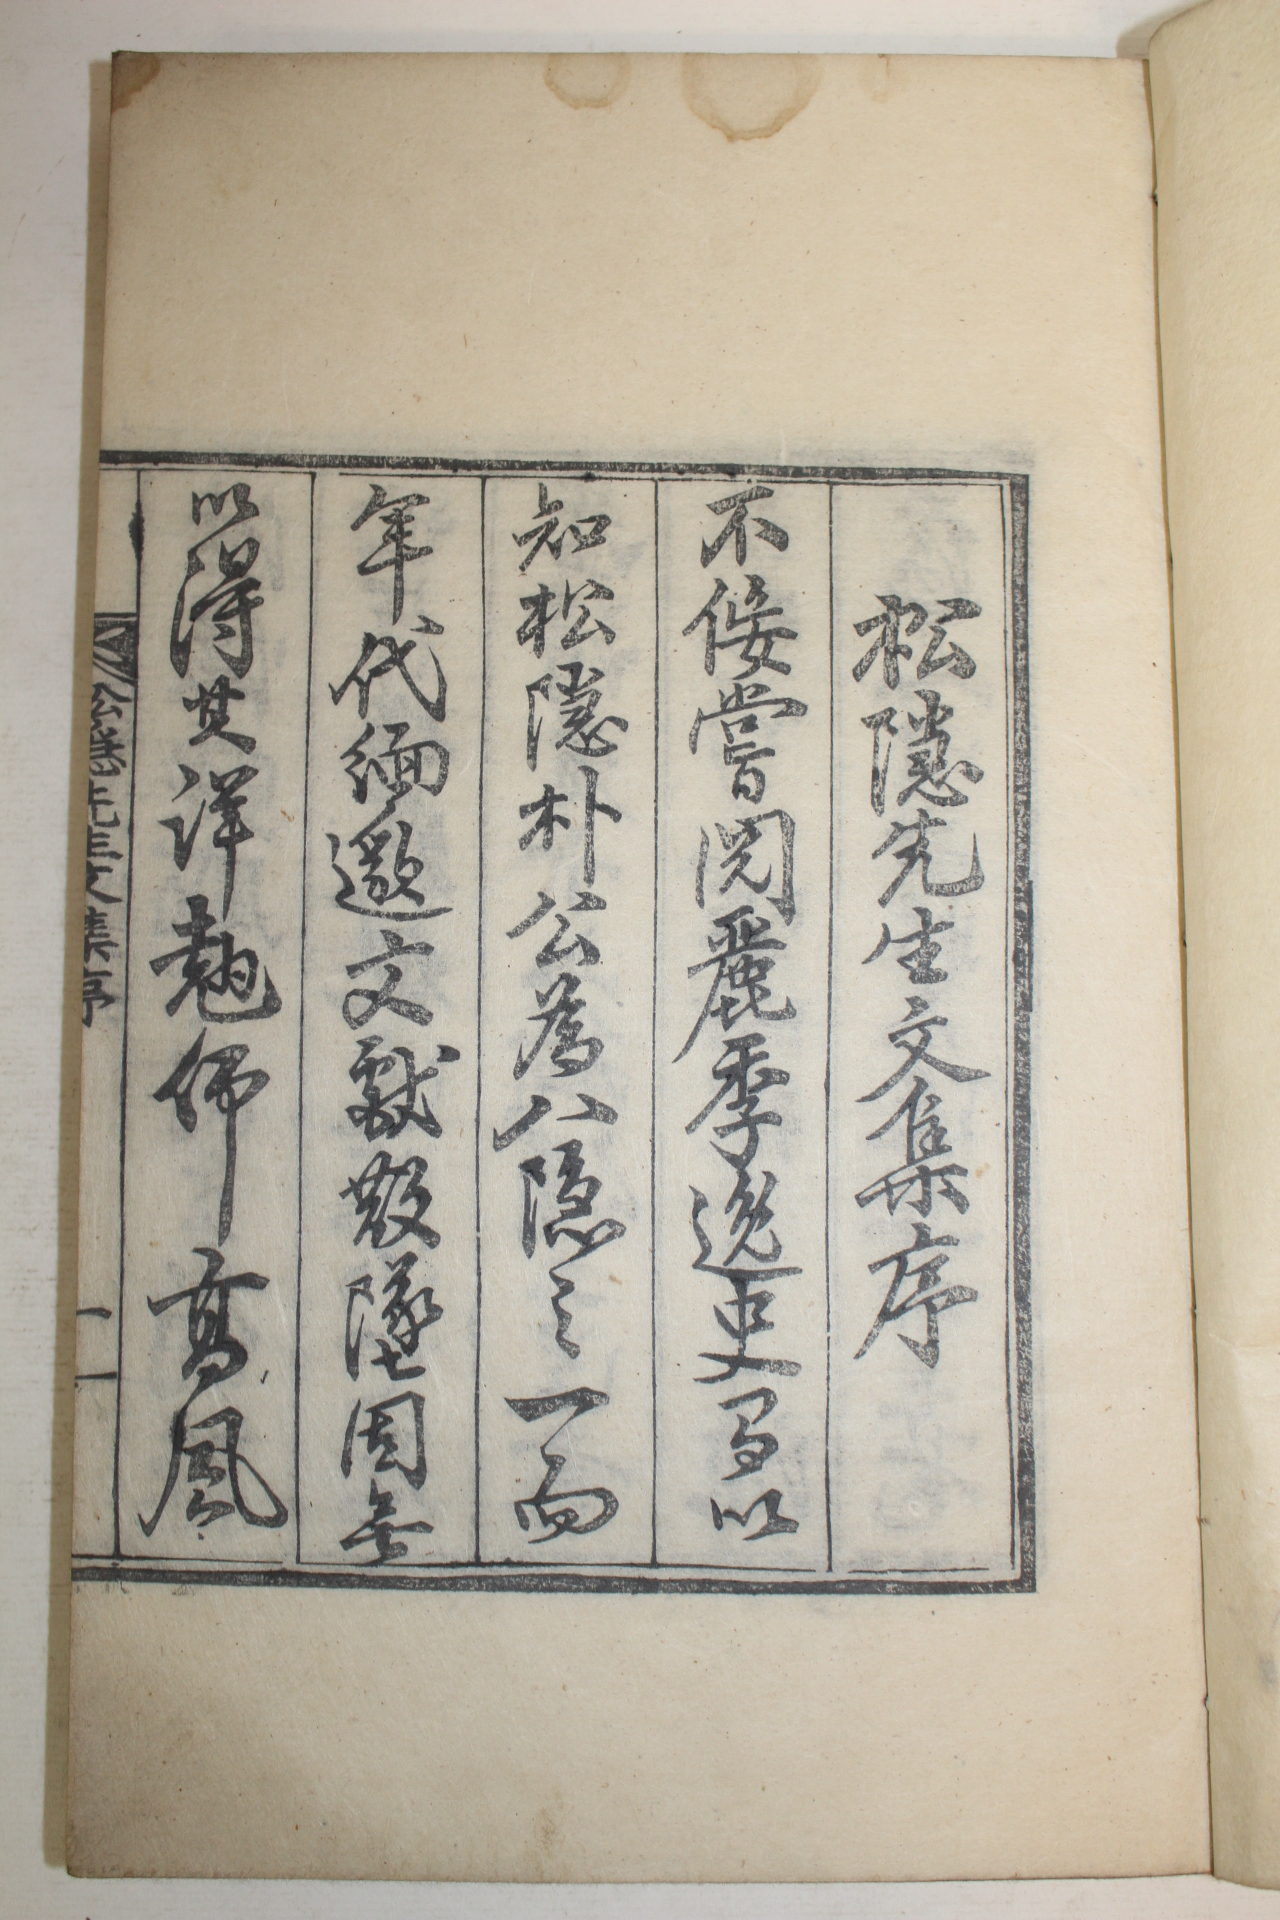 松隱先生文集序
不佞嘗閱麗季逸史有以
知松隱朴公爲八隱之一而
年代緬邈文獻散墜固無
以得其詳佛高風
松隱先生文集序 一